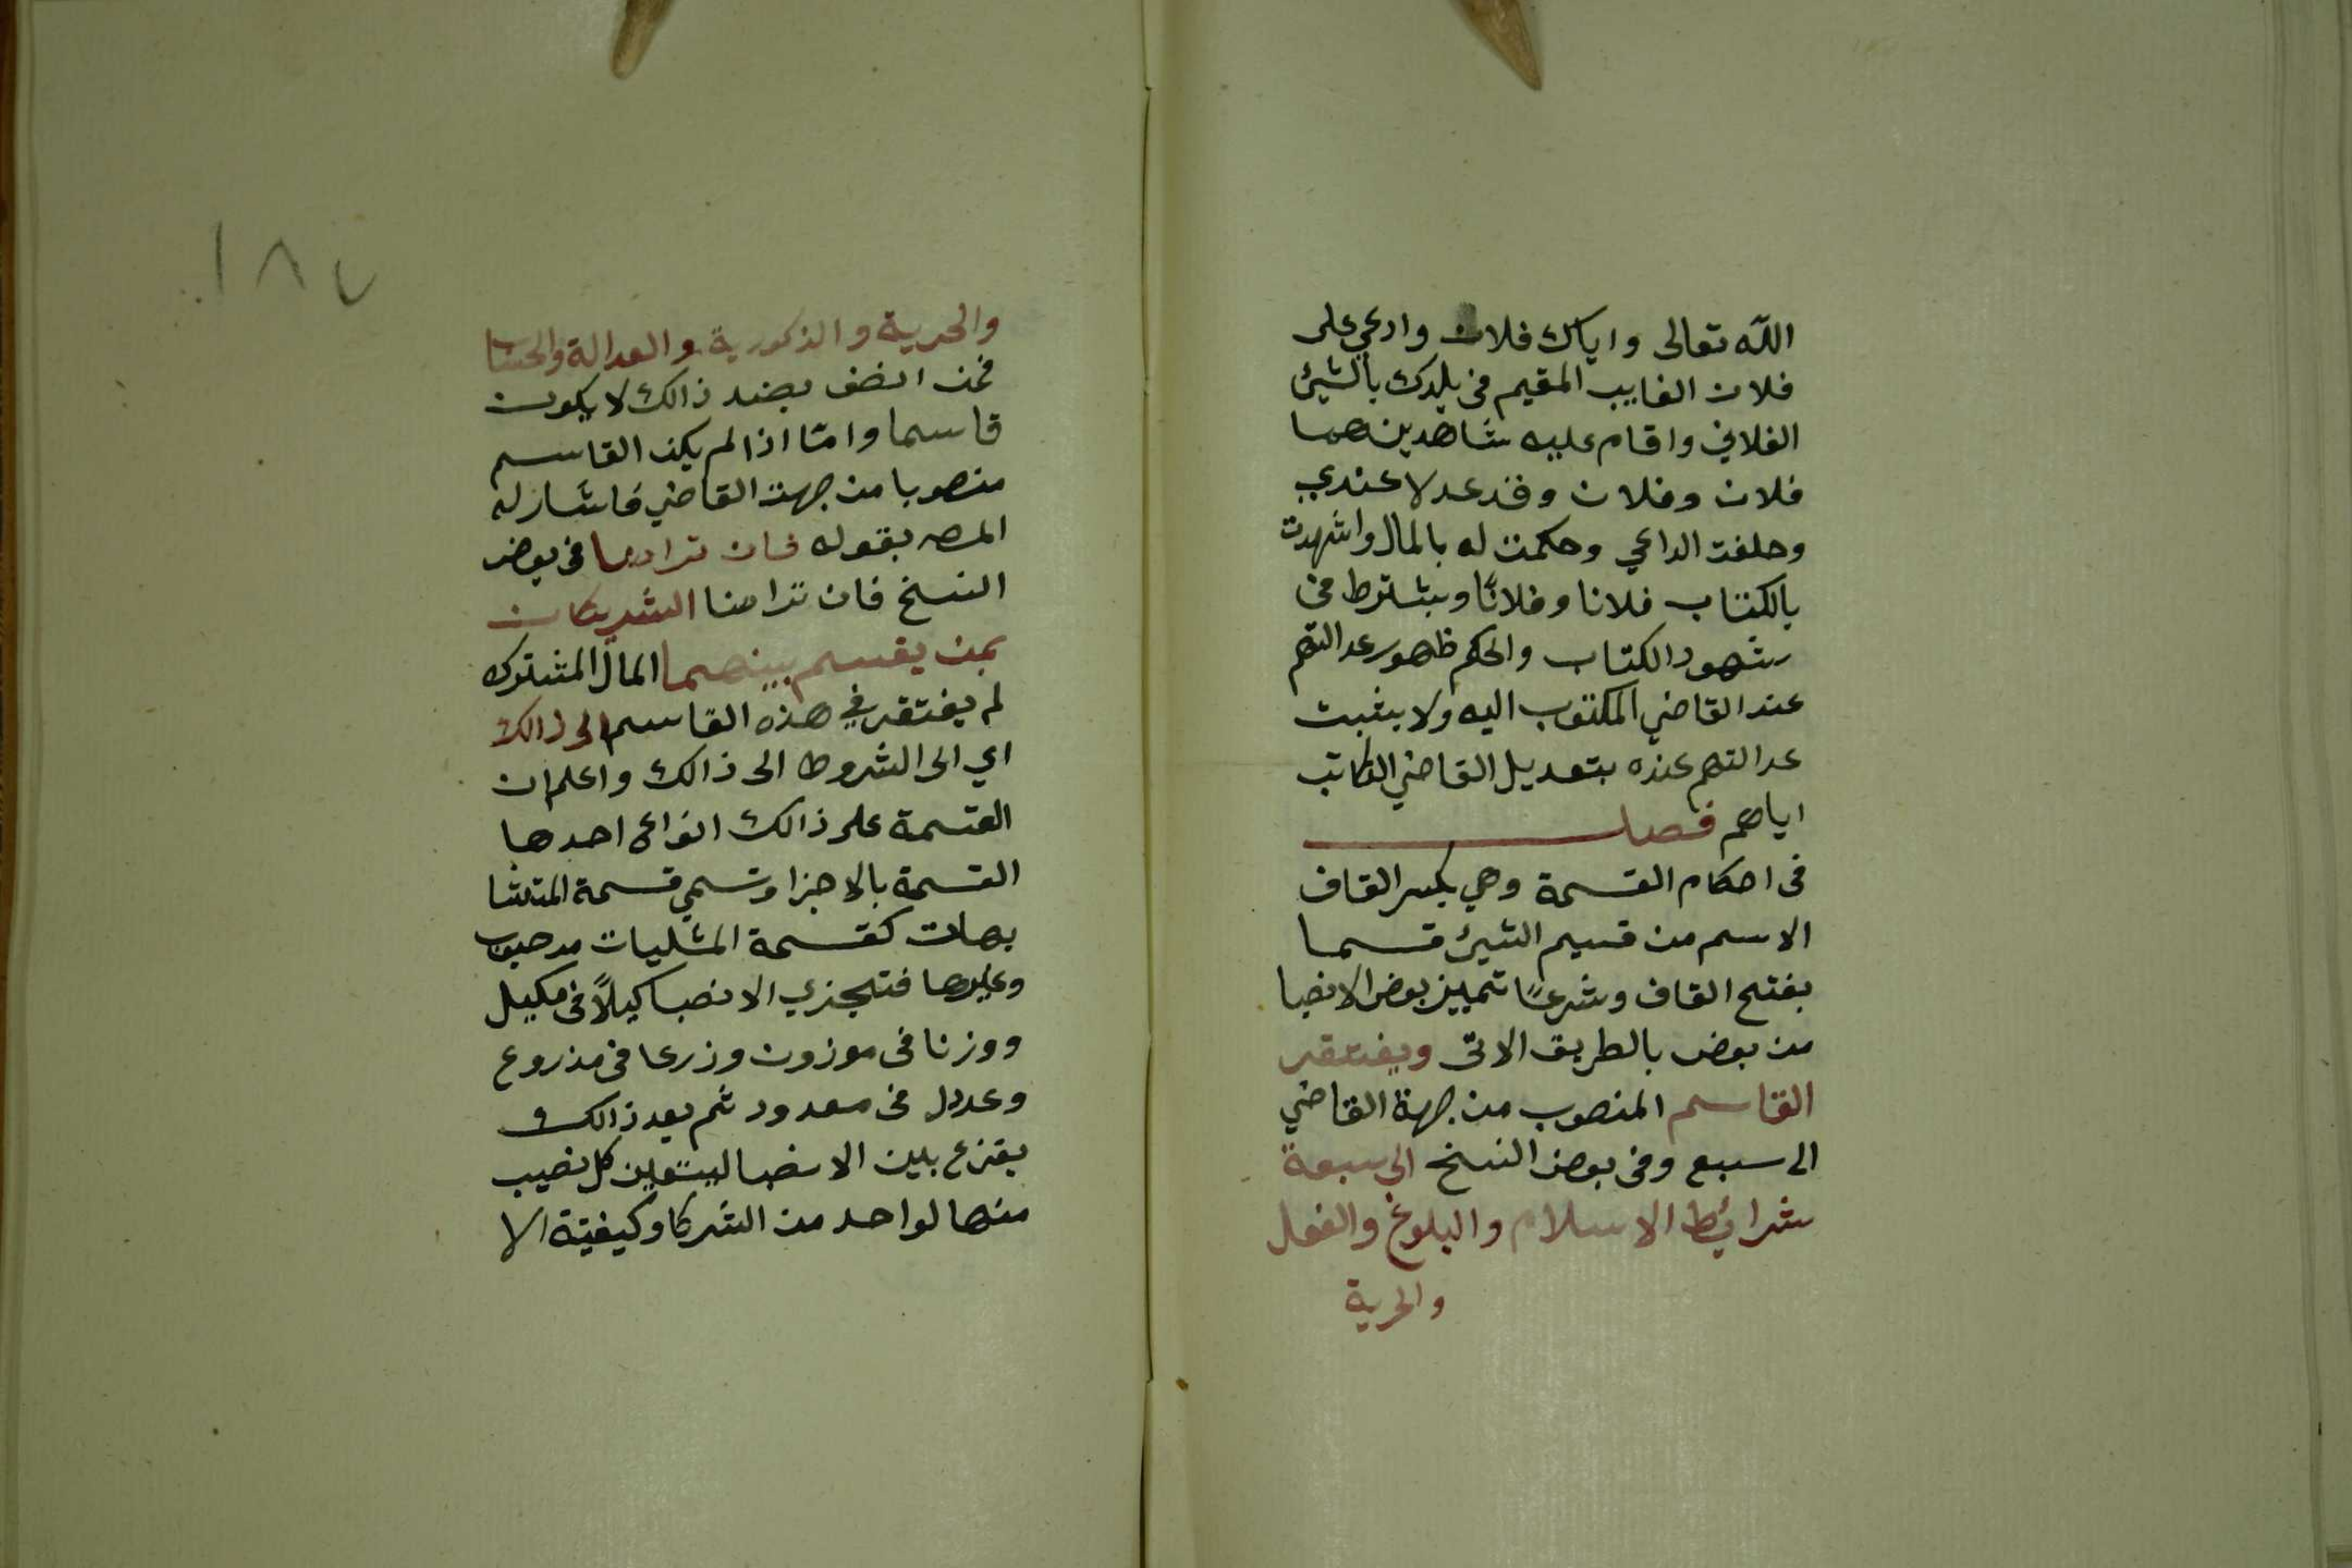 الله تعالى واياك فلان وادعي على
فلان الغايب المقيم في بلدك بالشيئ
الفلاني واقام عليه شاهدين هما
فلان وفلان وقد عدلا عندي
وحلفت الداعي وحكمت له بالمال واشهدت
بالكتاب فلانا وفلانًا ويشترط في
شهود الكتاب والحكم ظهور عدالتهم
عند القاضي المكتوب اليه ولا يثبت
عدالتهم عنده بتعديل القاضي الكاتب
اياهم فصل
في احكام القسمة وهي بكسر القاف
الاسم من قسيم الشيئ قسما
بفتح القاف وشرعًا تمييز بعض الانصبا
من بعض بالطريق الاتى ويفتقر
القاسم المنصوب من جهة القاضي
الى سبع وفي بعض النسخ الى سبعة
شرائط الاسلام والبلوغ والعقل
والحرية
١٨٧
والحرية والذكورية والعدالة والحساب
فمن اتصف بضد ذالك لا يكون
قاسما وامّا اذا لم يكن القاسم
منصوبا من جهت القاضي فاشار له
المصـ بقوله فان تراضيا في بعض
النسخ فان تراضا الشريكان
بمن يقسم بينهما المال المشترك
لم يفتقر في هذه القاسم الى ذالك
اي الى الشروط الى ذالك واعلم ان
القسمة على ذالك انواع احدها
القسمة بالاجزا وتسمي قسمة المتشا
بهات كقسمة المثليات من حبوب
وغيرها فتجزي الانصبا كيلًا في مكيل
ووزنا في موزون وزرعا في مذروع
وعددا في معدود ثم بعد ذالك
يقزع بين الانصبا ليتعين كل نصيب
منها لواحد من الشركا وكيفيّة الا